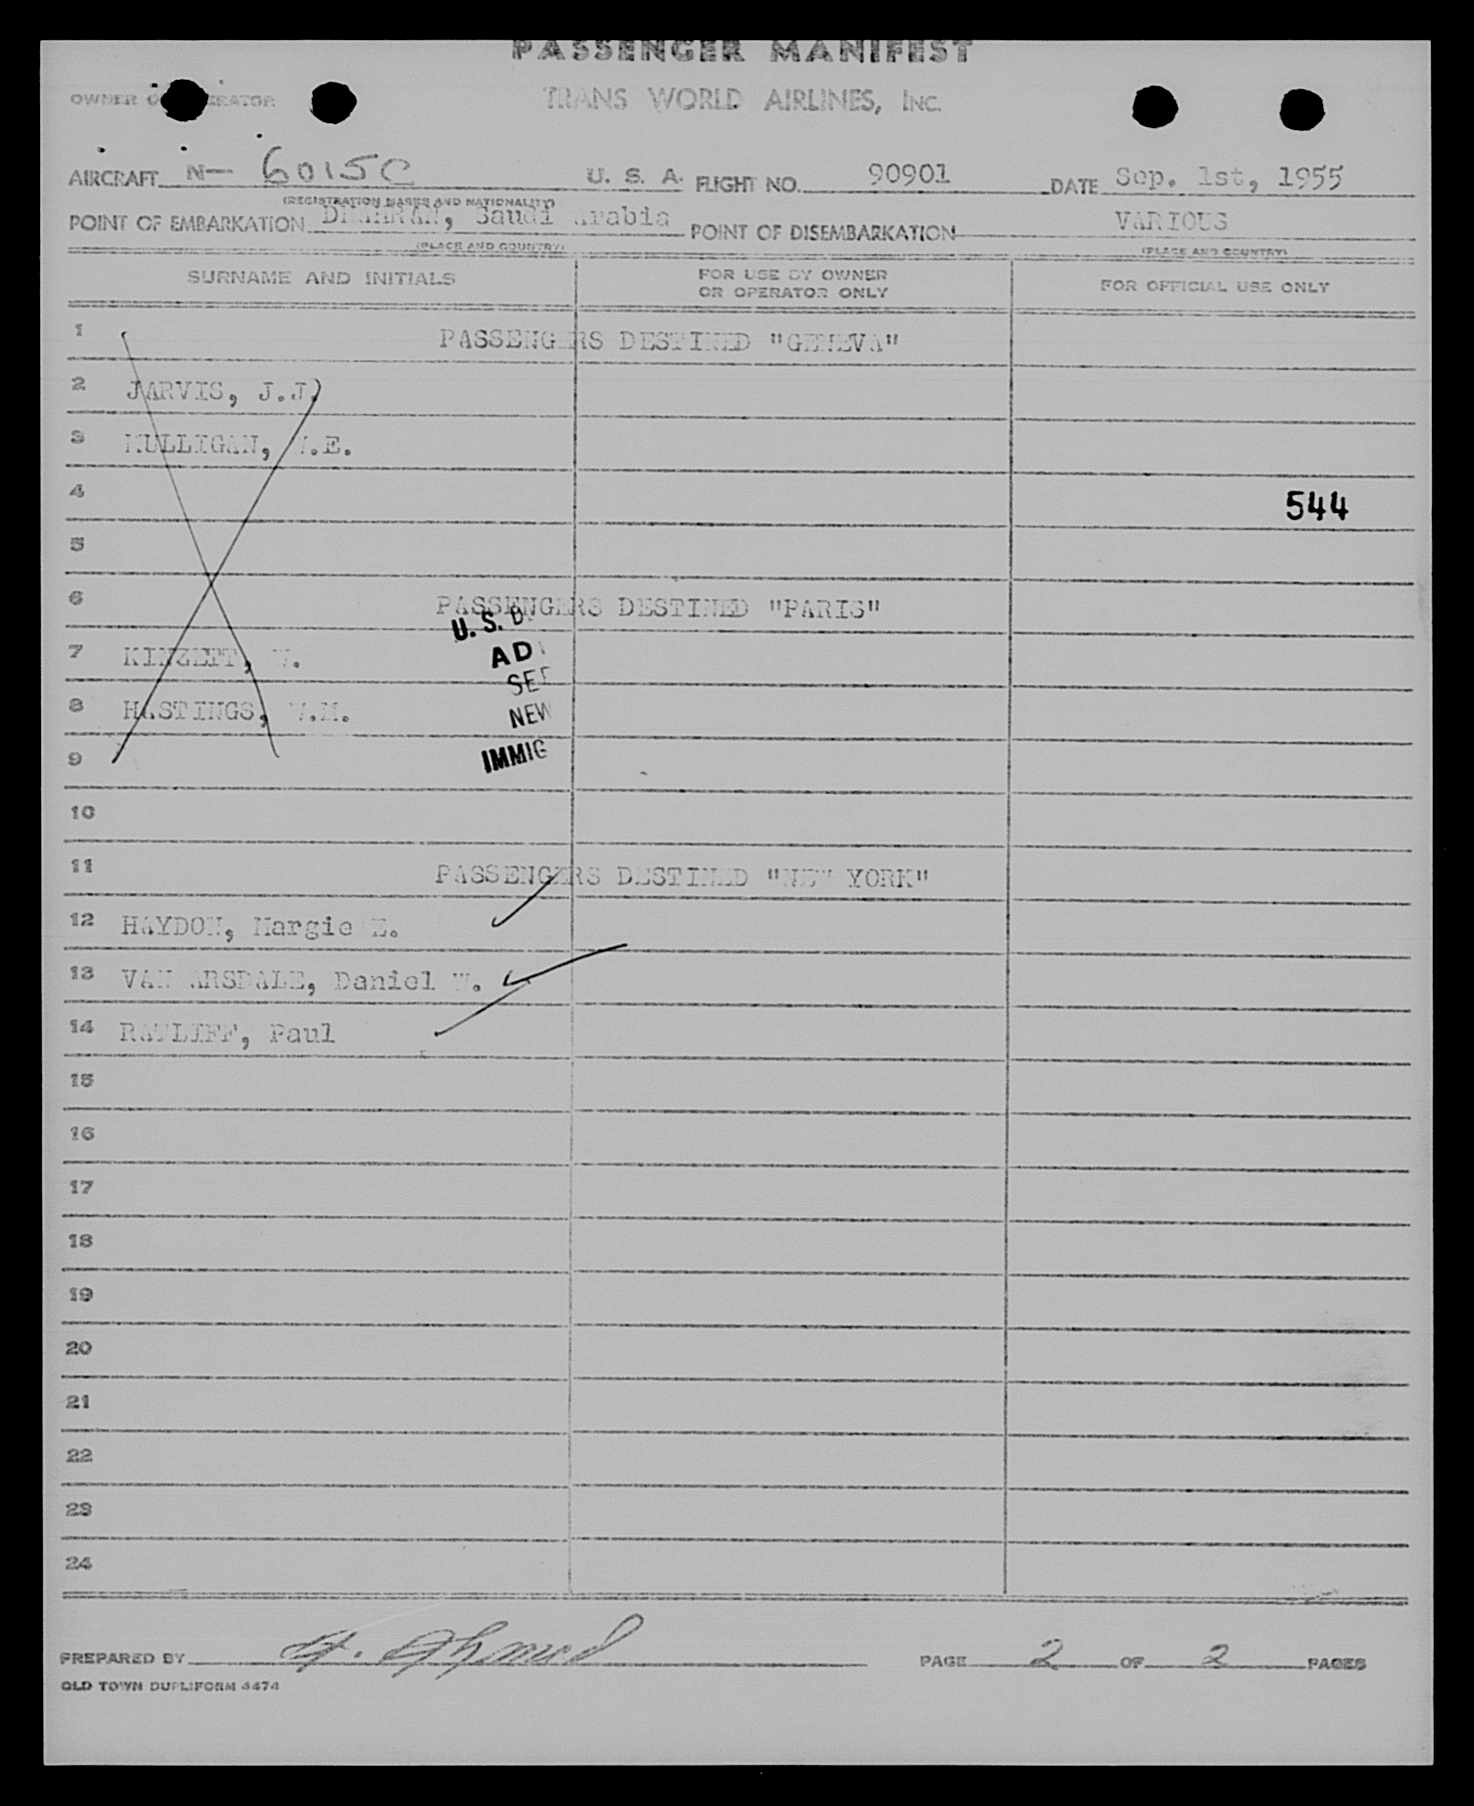 PASSENGER MANIFEST
OWNER OPERATOR
TRANS WORLD AIRLINES, INC.
AIRCRAFT N- 6015C U. S. A. FLIGHT NO. 90901 DATE Sep. 1st, 1955
(REGISTRATION MARKS AND NATIONALITY)
POINT OF EMBARKATION DHAHRAN, Saudi Arabia POINT OF DISEMBARKATION VARIOUS
(PLACE AND COUNTRY) (PLACE AND COUNTRY)
SURNAME AND INITIALS
FOR USE BY OWNER
OR OPERATOR ONLY
FOR OFFICIAL USE ONLY
1 PASSENGERS DESTINED "GENEVA"
2 JARVIS, J.J.
3 MULLIGAN, W.E.
4 544
5
6 PASSENGERS DESTINED "PARIS"
U. S.
AD
7 V.
SE
8 HASTINGS, W.M.
NEW
9
IMMIG
10
11 PASSENGERS DESTINED "NEW YORK"
12 HAYDON, Margie E.
13 VAN ARSDALE, Daniel W.
14 RATLIFF, Paul
15
16
17
18
19
20
21
22
23
24
PREPARED BY H. Ahmed PAGE 2 OF 2 PAGES
OLD TOWN DUPLIFORM 4474